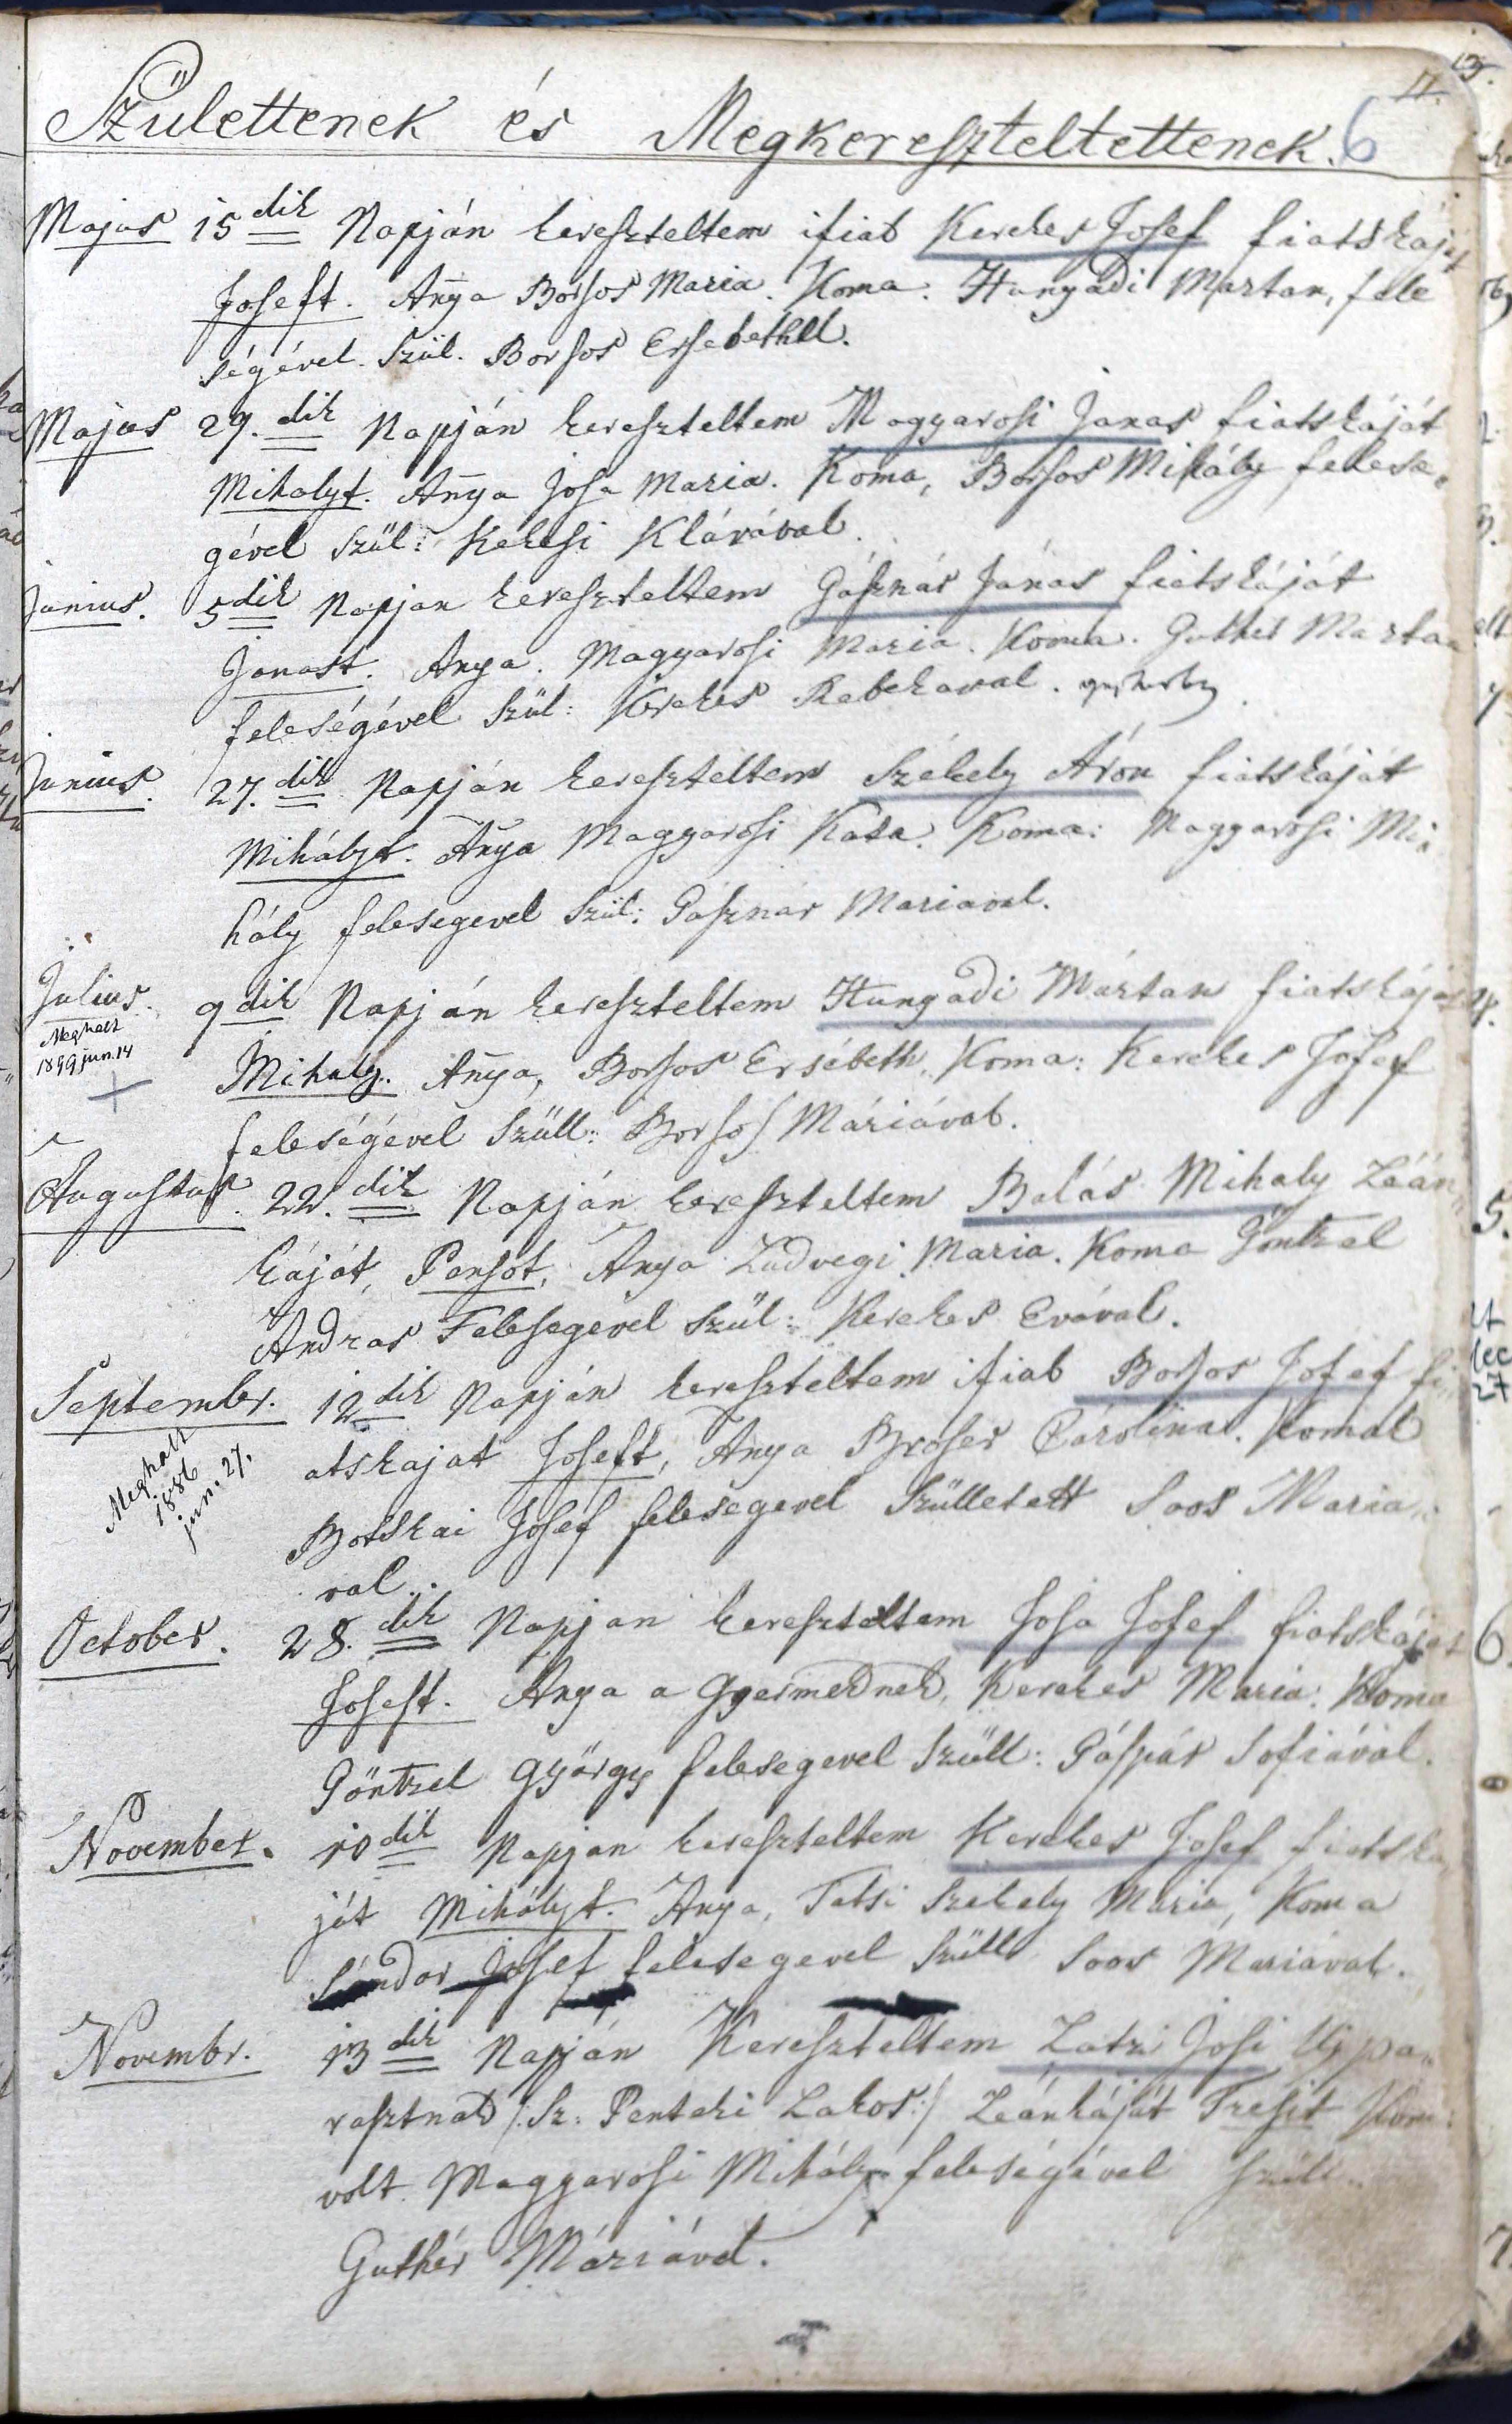 Születtenek és Megkereszteltettenek. 6
Majus 15dik Napján kereszteltem ifiab Kerekes Josef fiatskáját
Joseft. Anya Borsos Maria. Koma. Hunyadi Martan, fele
ségével. Szül. Borsos Ersebethel.
Majus 29.dik Napján kereszteltem Magyarosi Janas fiatskáját
Mihalyt. Anya Josa Maria. Koma, Borsos Mihály felesé-
gével Szül: Kekesi Klárával.
Junius. 5dik Napjan kereszteltem Gásznár Jánas fiatskáját
Janast. Anya. Magyarosi Maria. Koma. Guther Martan
feleségével Szül: Kerekes Rebekaval.
Junius. 27.dik Napján kereszteltem Székely Áron fiatskáját
Mihályt. Anya Magyarosi Kata. Koma: Magyarosi Mi-
hály felesegevel Szül: Gásznar Mariaval.
Julius. 9dik Napján kereszteltem Hunyadi Mártan fiatskáját
Meghalt
1899 jun. 14
Mihaly. Anya, Borsos Ersébeth. Koma: Kerekes Josef
feleségével Szüll: Borsos Máriával.
Augustus. 22.dik Napján kereszteltem Balás Mihaly Leán"
káját, Persot, Anya Ludvegi Maria. Koma Göntzel
Andras Felesegevel Szül: Kerekes Evával.
Septembr. 12dik Napján kereszteltem ifiab Borsos Josef fi"
atskajat Joseft, Anya Broser Carolina. Komak
Meghalt
1886
jun. 27.
Botskai Josef felesegevel Szülletett Soos Maria
val.
October. 28.dik Napjan kereszteltem Josa Josef fiatskáját
Joseft. Anya a Gyermeknek, Kerekes Maria. Koma
Göntzel György felesegevel Szüll: Gáspár Sofiával.
November. 10dik Napjan kereszteltem Kerekes Josef fiatska
ját Mihályt. Anya, Tatsi Szekely Maria, Koma
Sándor Josef felesegevel Szüll Soos Mariaval.
Novembr. 13dik Napján Kereszteltem Latzi Josi Ujpa"
rasztnak /: Sz: Penteki Lakos:/ Leánkáját Tresit Kom:
volt Magyarosi Mihály feleségével szüll:
Guthér Máriával.